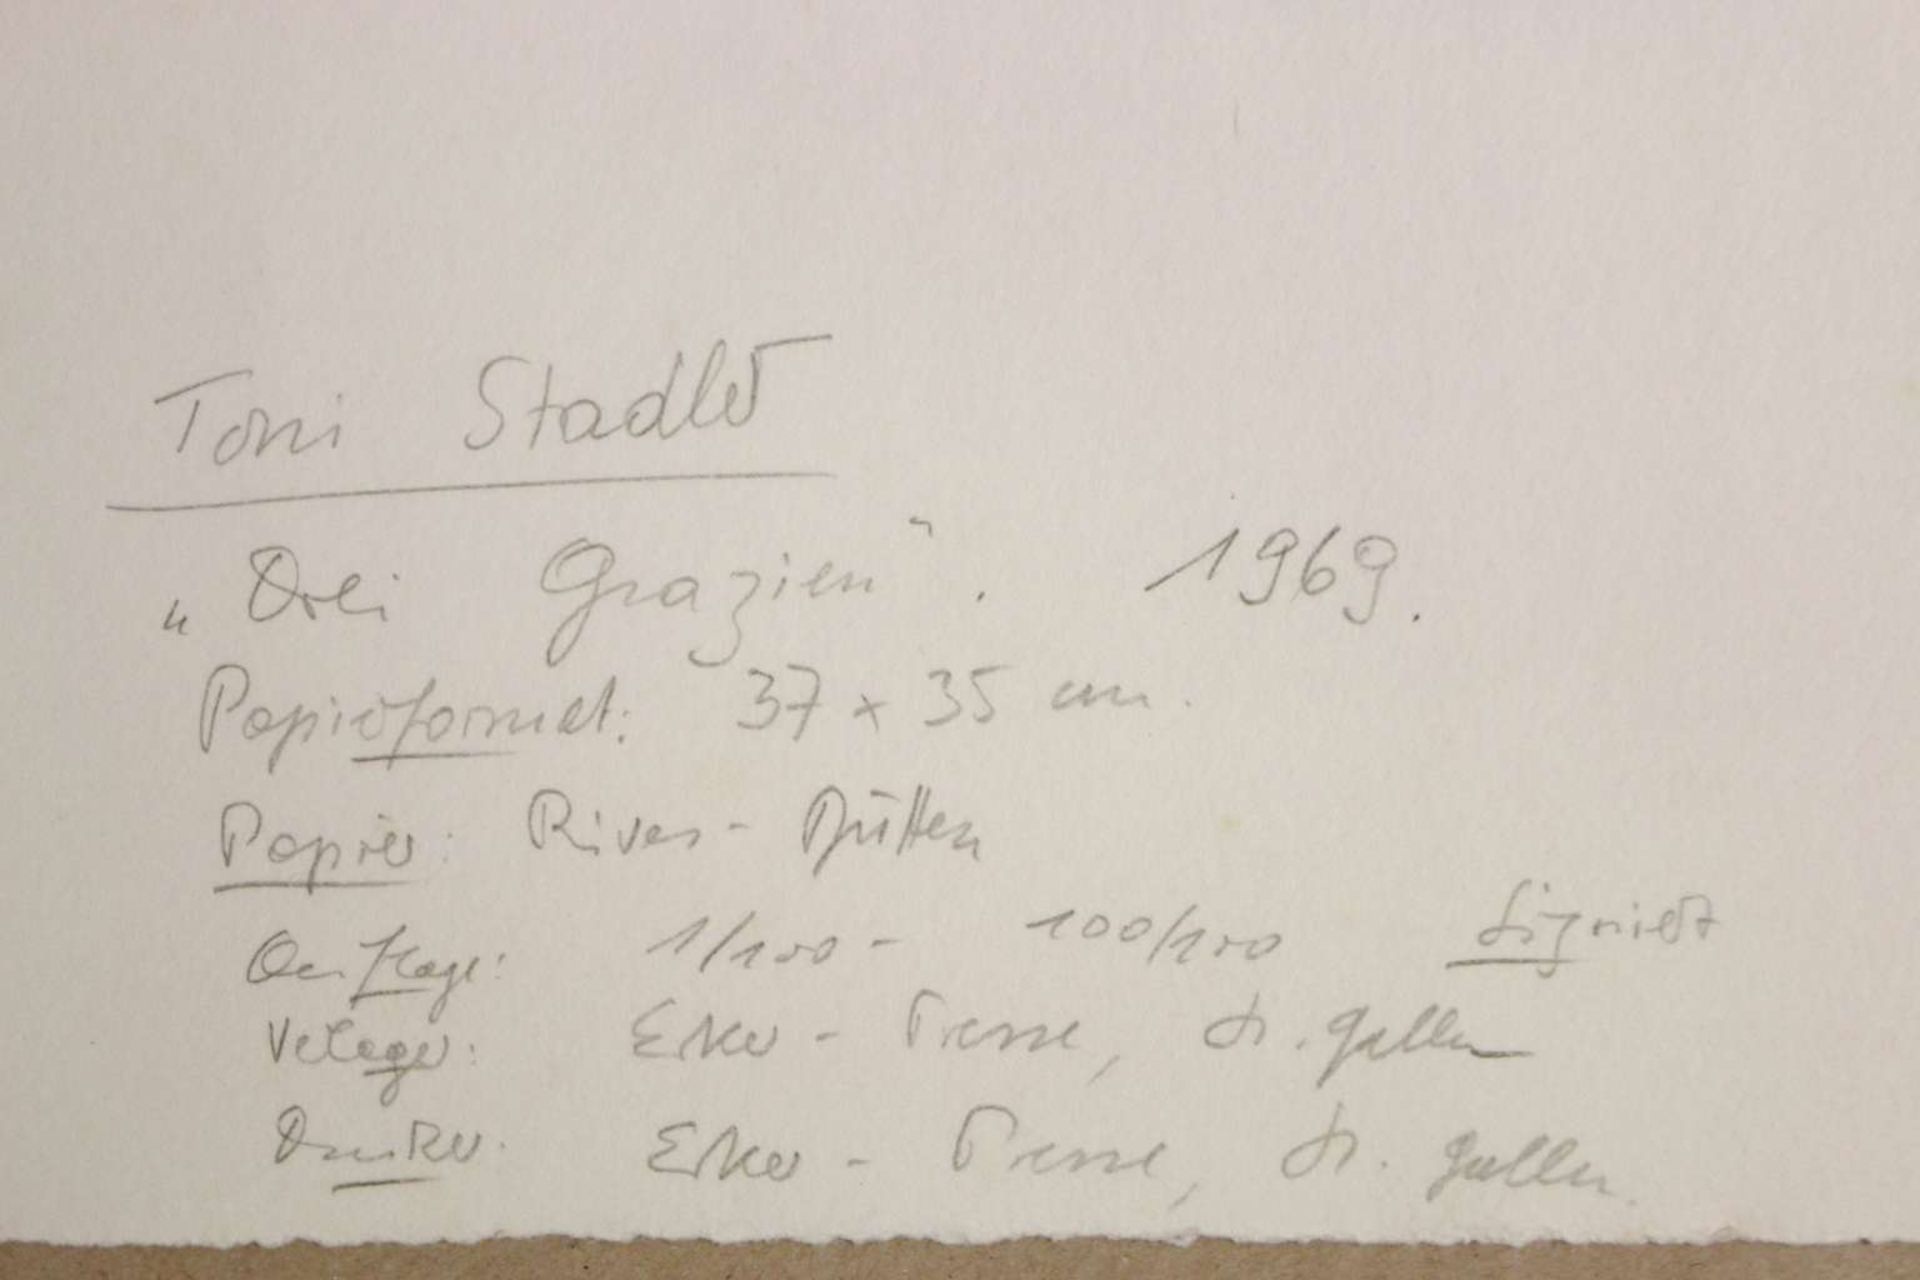 Toni Stadler
„Drei Grazien". 1969.
Papierformat: 37 x 35 cm.
Papier: Rives - Bütten
Auflage: 1/100 - 100/100 signiert
Verleger: Erker - Presse, St. Gallen
Drucker: Erker - Presse, St. Gallen.